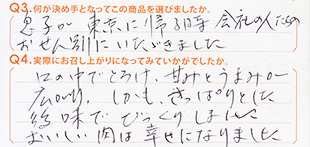 Q3.何が決め手となってこの商品を選びましたか。
息子が東京に帰る時会社の人たちの
おせん別にいただきました
Q4.実際にお召し上がりになってみていかがでしたか。
口の中でとろけ、甘みとうまみが
広がり、しかも、さっぱりとした
後味でびっくりしました
おいしい肉は幸せになりました